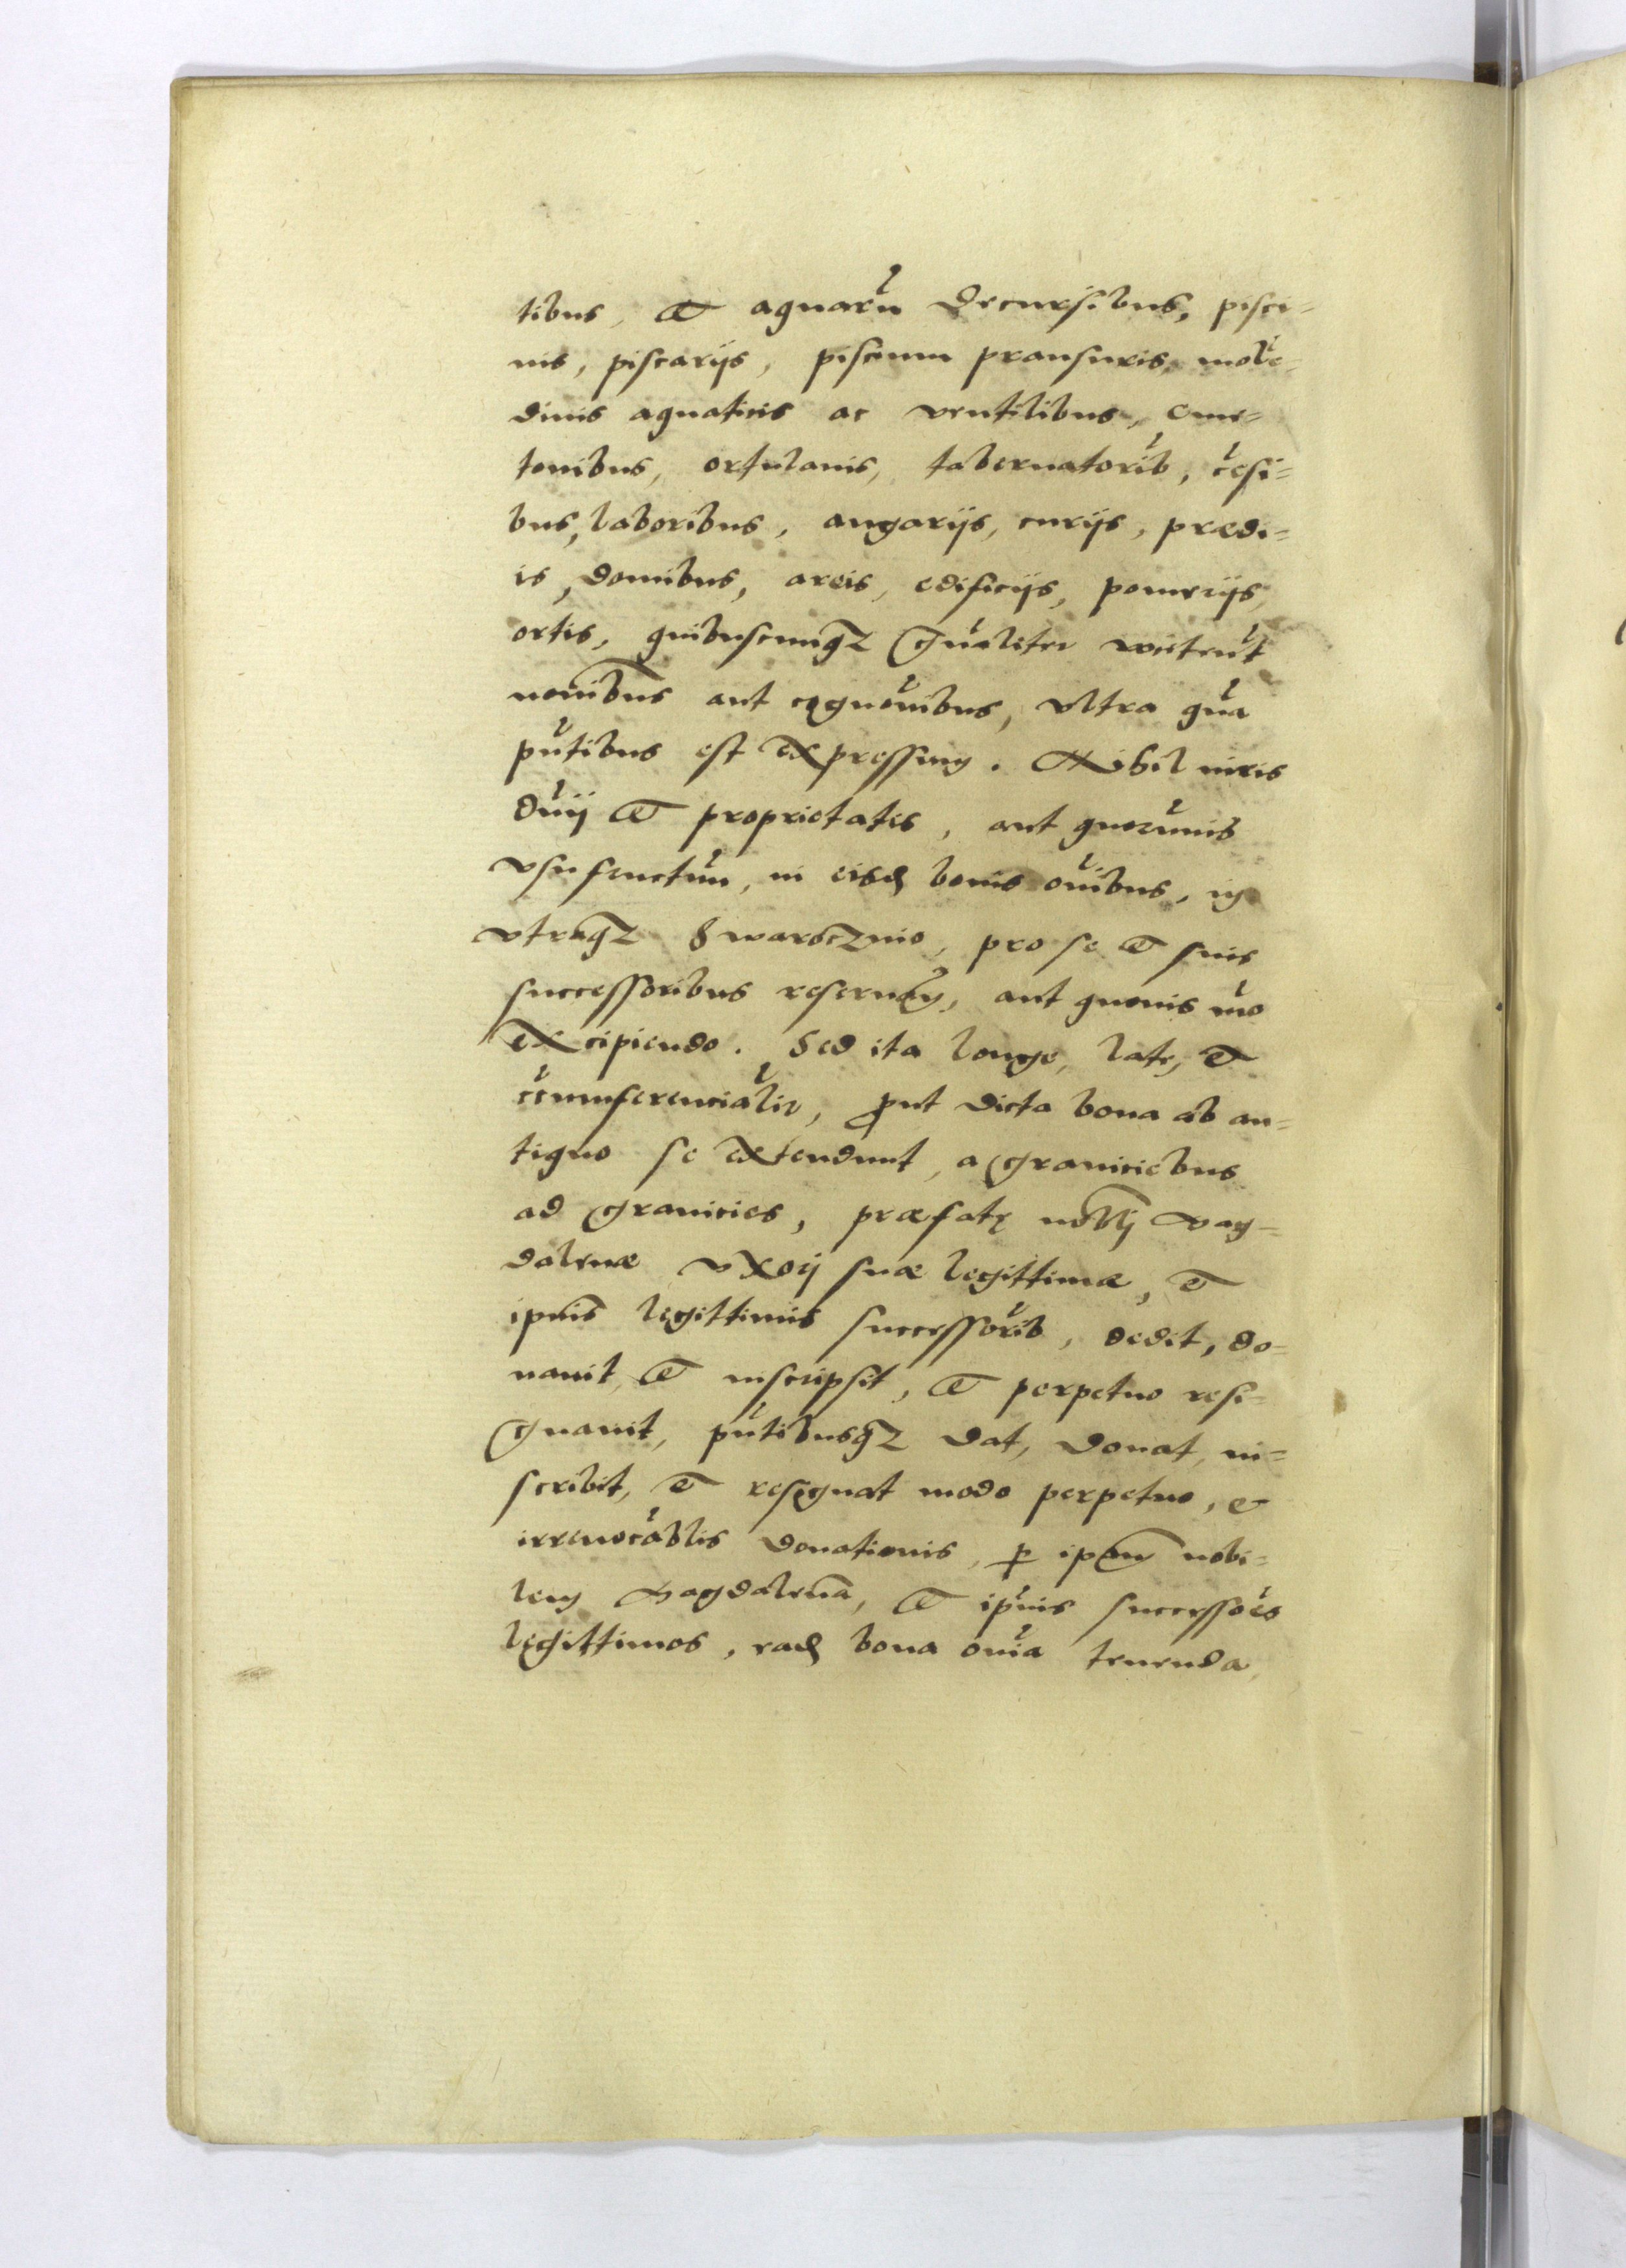 tibus, et aquaru decursibus, pisci=
nis, piscarijs, piscium pransuris, mole=
dinis aquaticis ac ventilibus, cme=
tonibus, ortulanis, tabernatorib, cesi=
bus, laboribus, angarijs, curijs, prædi=
is, domibus, areis, edificijs, pomerijs,
ortis, quibuscunqz gnaliter
nominibus aut cognoibus, vltra qua
pntibus est expressum. Nihil iuris
dnij et proprietatis, aut quorumis
vsufructum, in eisd bonis oibus, in
vtraqz Swaroczino, pro se et suis
successoribus reseruan, aut quouis mo
excipiendo. Sed ita longe, late, et
circumferencialir, put dicta bona ab an=
tiquo se extendunt, a graniciebus
ad granicies, præfatę nobli Mag=
dalenæ vxori suæ legittimæ, et
ipius legittimis successorib, dedit, do=
nauit, et inscripsit, et perpetuo resi=
gnauit, pntibusqz dat, donat, in=
scribit, et resignat modo perpetuo, et
irreuocablis donationis, p ipam nobi=
lem Magdalena, et ipius successores
legittimos, ead bona oia tenenda,